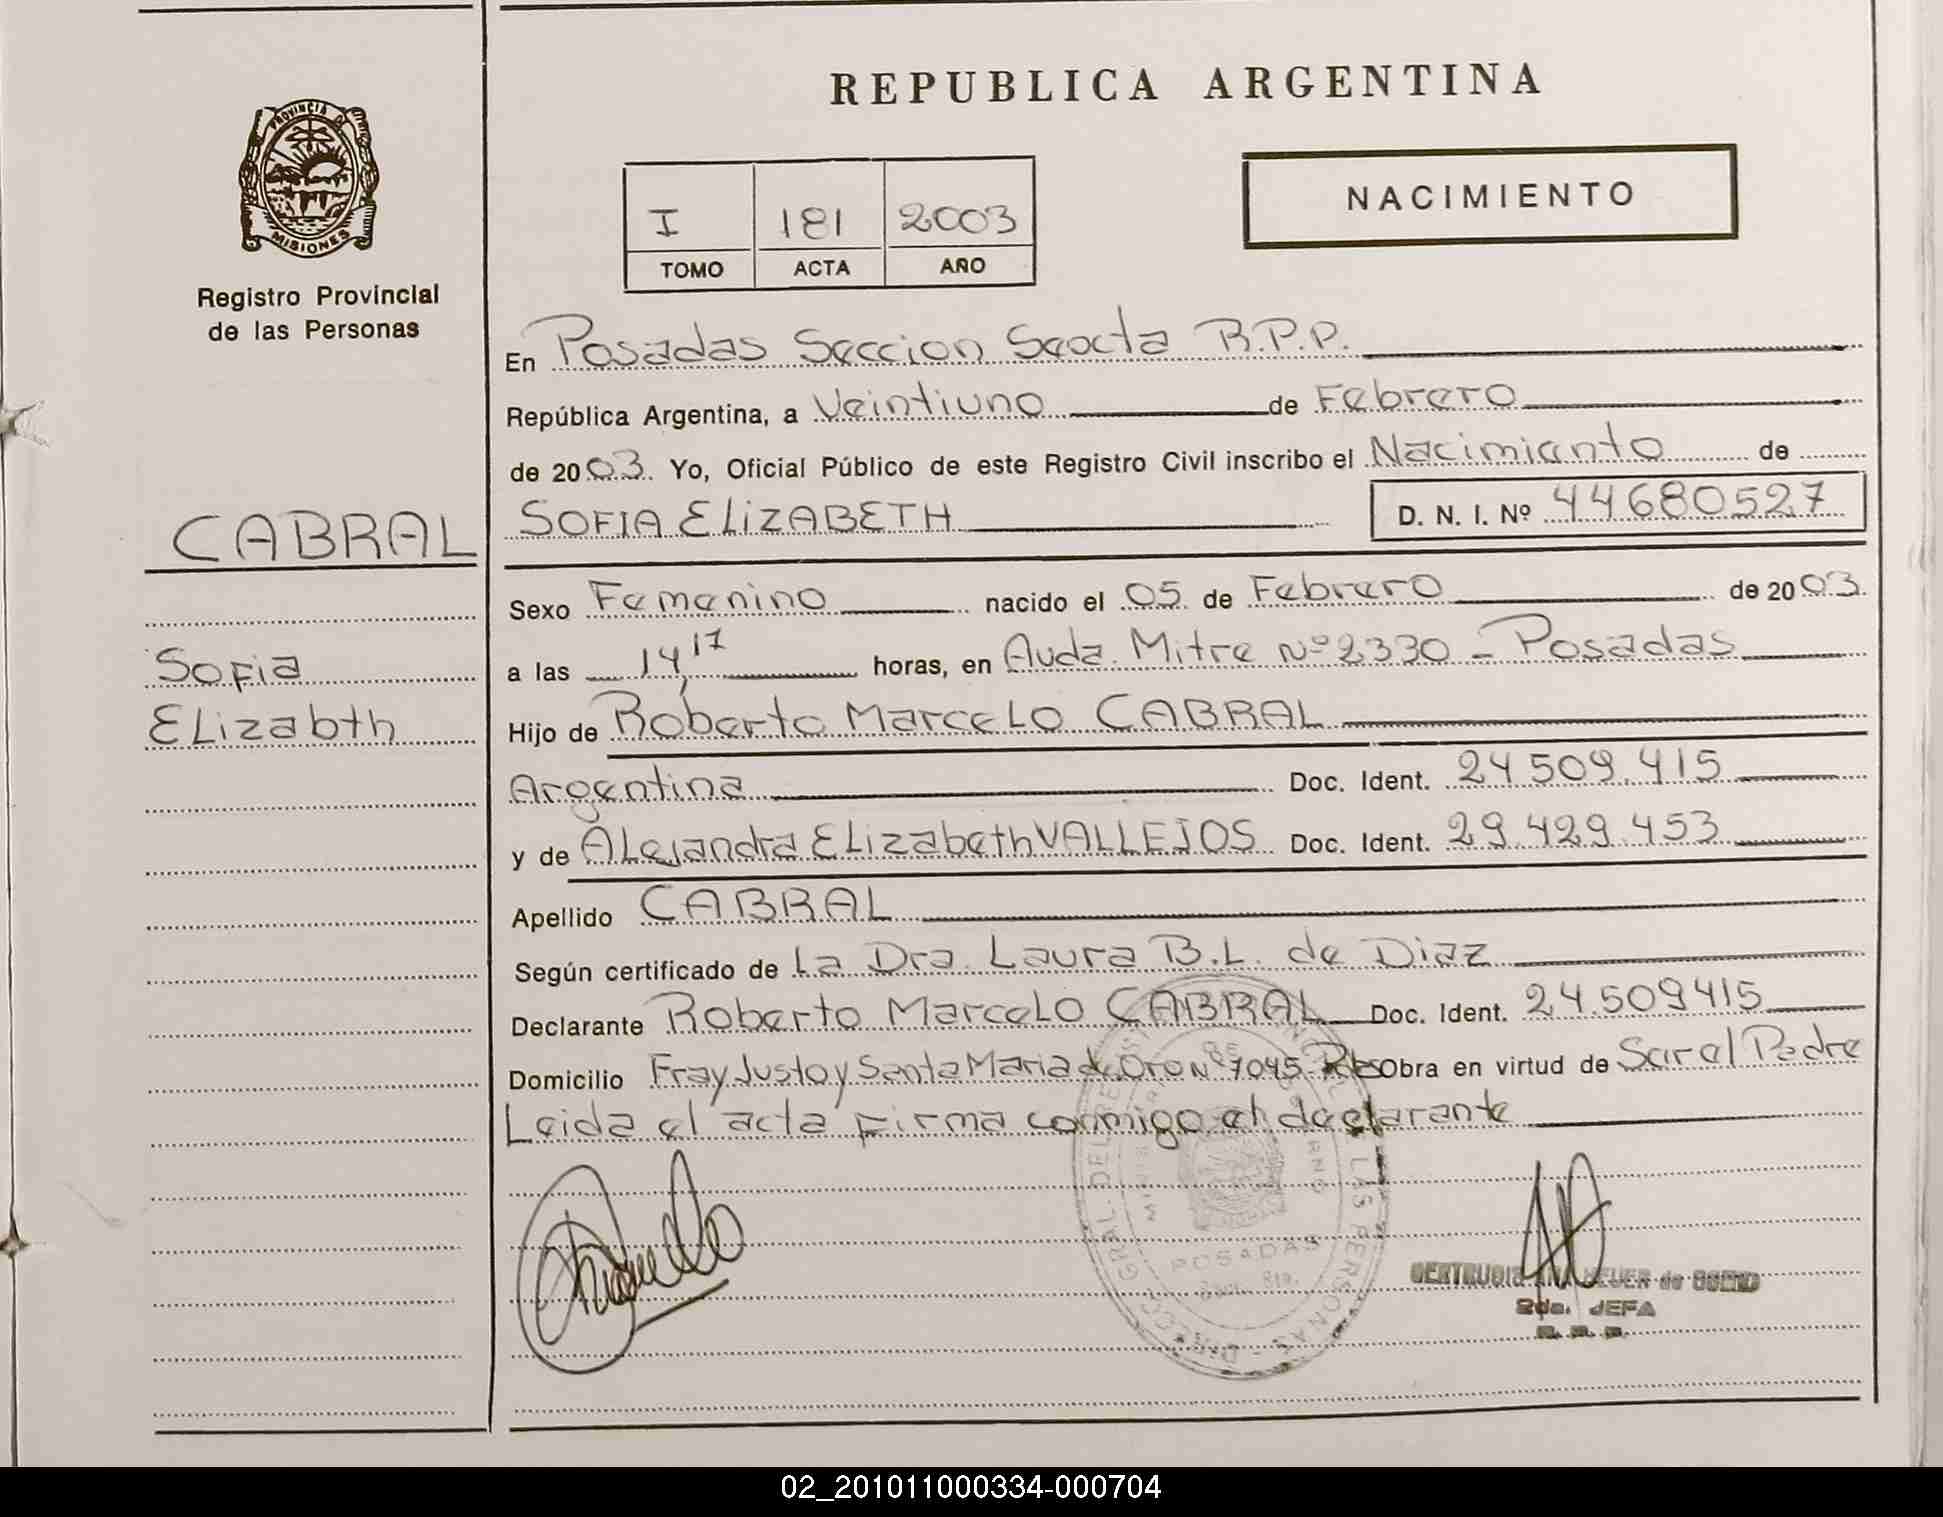 PROVINCIA DE
MISIONES
Registro Provincial
de las Personas
CABRAL
Sofia
Elizabth
REPUBLICA ARGENTINA
I 181 2003
TOMO ACTA AÑO
NACIMIENTO
En Posadas Seccion Sexta R.P.P.
República Argentina, a Veintiuno de Febrero
de 2003. Yo, Oficial Público de este Registro Civil inscribo el Nacimiento de
SOFIA ELIZABETH D. N. I. Nº 44680527
Sexo Femenino nacido el 05 de Febrero de 2003.
a las 14,17 horas, en Avda. Mitre Nº 2330 - Posadas
Hijo de Roberto Marcelo CABRAL
Argentina Doc. Ident. 24.509.415
y de Alejandra Elizabeth VALLEJOS Doc. Ident. 29.429.453
Apellido CABRAL
Según certificado de La Dra. Laura B.L. de Diaz
Declarante Roberto Marcelo CABRAL Doc. Ident. 24.509415
Domicilio Fray Justo y Santa Maria de Oro Nº 7045 Obra en virtud de Ser el Padre
Leida el acta firma conmigo el declarante
POSADAS
2da. JEFA
02_201011000334-000704